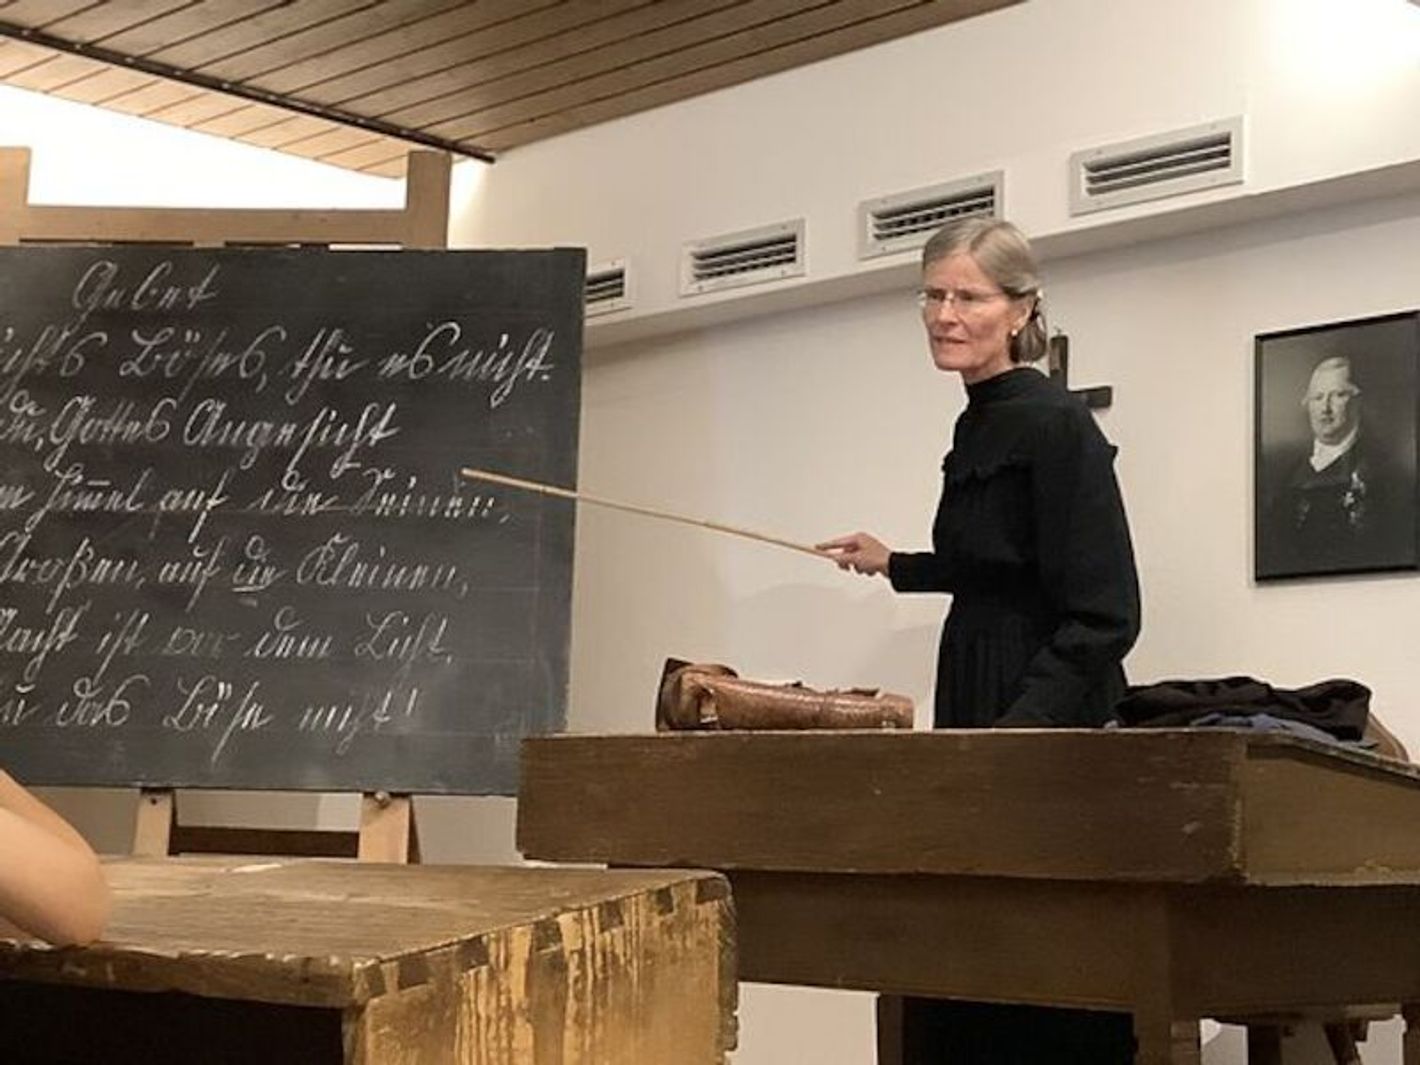 Gebet
ichts Böses, thu es nicht.
du, Gottes Angesicht
m Himmel auf die Seinen,
Großen, auf die Kleinen,
Nacht ist vor dem Licht,
u das Böse nicht!